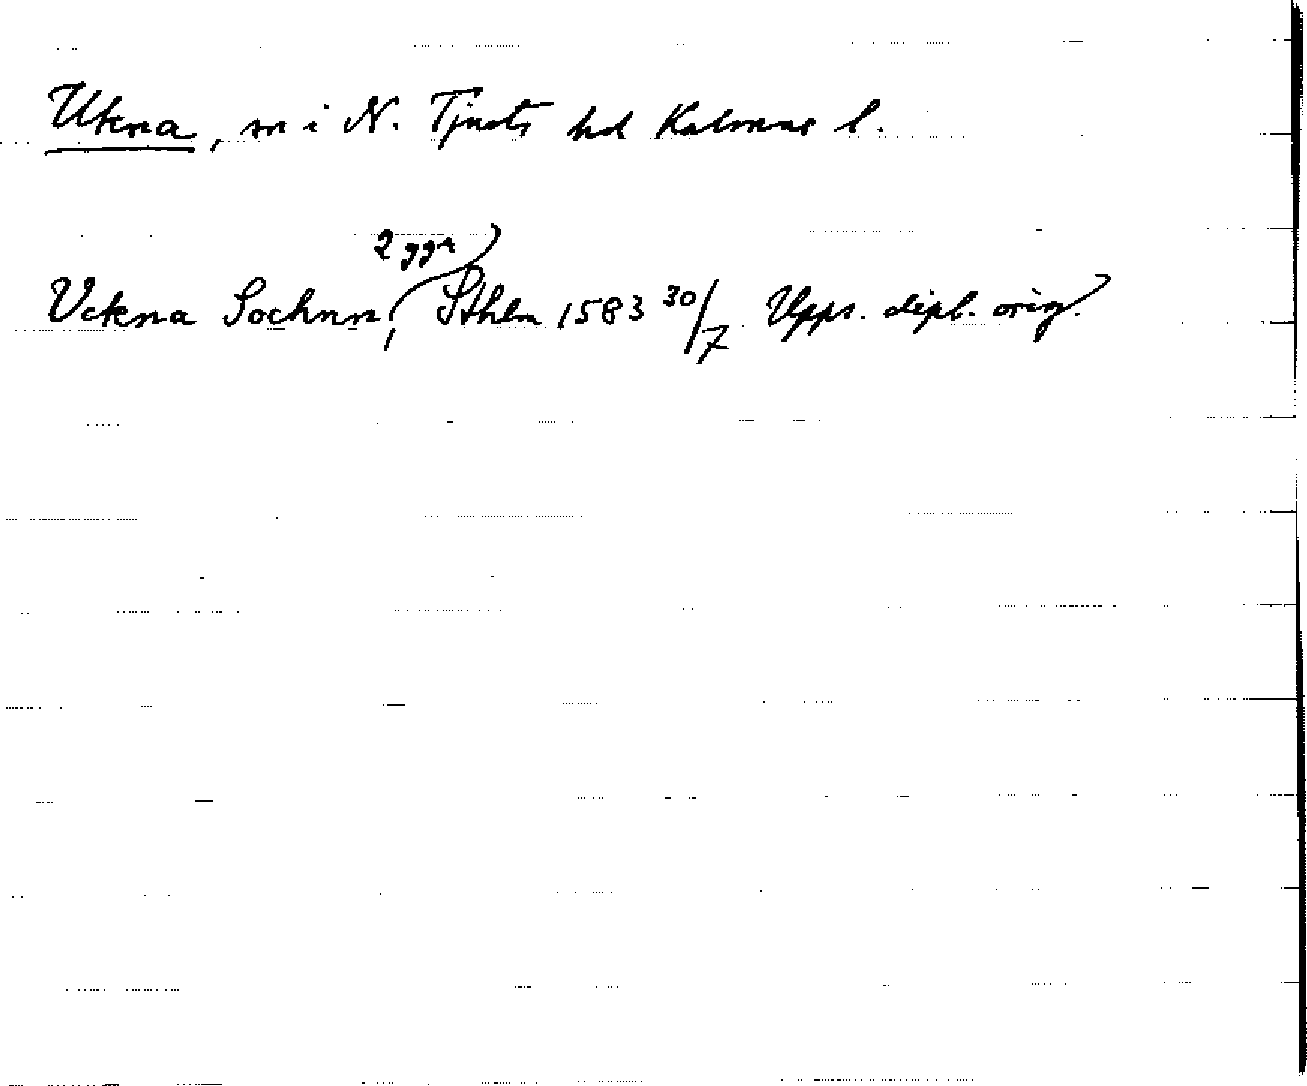 Ukna, sn i N. Tjusts hd Kalmar l.
2 ggr
Vckna Sochnn, Sthlm 1583 30/7 Upps. dipl. orig.